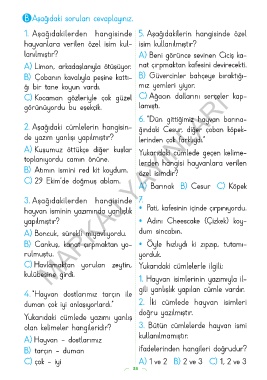 B Aşağıdaki soruları cevaplayınız.
1. Aşağıdakilerden hangisinde
hayvanlara verilen özel isim kul-
lanılmıştır?
A) Limon, arkadaşlarıyla ötüşüyor.
B) Çobanın kavalıyla peşine kattı-
ğı bir tane koyun vardı.
C) Kocaman gözleriyle çok güzel
görünüyordu bu eşekçik.
2. Aşağıdaki cümlelerin hangisin-
de yazım yanlışı yapılmıştır?
A) Kuşumuz öttükçe diğer kuşlar
toplanıyordu camın önüne.
B) Atımın ismini red kit koydum.
C) 29 Ekim'de doğmuş ablam.
3. Aşağıdakilerin hangisinde
hayvan isminin yazımında yanlışlık
yapılmıştır?
A) Boncuk, sürekli miyavlıyordu.
B) Cankuş, kanat çırpmaktan yo-
rulmuştu.
C) Havlamaktan yorulan zeytin,
kulübesine girdi.
4. "Hayvan dostlarımız tarçın ile
duman çok iyi anlaşıyorlardı."
Yukarıdaki cümlede yazımı yanlış
olan kelimeler hangileridir?
A) Hayvan - dostlarımız
B) tarçın - duman
C) çok - iyi
5. Aşağıdakilerin hangisinde özel
isim kullanılmıştır?
A) Beni görünce sevinen Ciciş ka-
nat çırpmaktan kafesini devirecekti.
B) Güvercinler bahçeye bıraktığı-
mız yemleri yiyor.
C) Ağacın dallarını serçeler kap-
lamıştı.
6. "Dün gittiğimiz hayvan barına-
ğındaki Cesur, diğer çoban köpek-
lerinden çok farklıydı."
Yukarıdaki cümlede geçen kelime-
lerden hangisi hayvanlara verilen
özel isimdir?
A) Barınak B) Cesur C) Köpek
7.
• Pati, kafesinin içinde çırpınıyordu.
• Adını Cheescake (Çizkek) koy-
dum sincabın.
• Öyle hızlıydı ki zıpzıp, tutamı-
yorduk.
Yukarıdaki cümlelerle ilgili;
1. Hayvan isimlerinin yazımıyla il-
gili yanlışlık yapılan cümle vardır.
2. İki cümlede hayvan isimleri
doğru yazılmıştır.
3. Bütün cümlelerde hayvan ismi
kullanılmamıştır.
ifadelerinden hangileri doğrudur?
A) 1 ve 2 B) 2 ve 3 C) 1, 2 ve 3